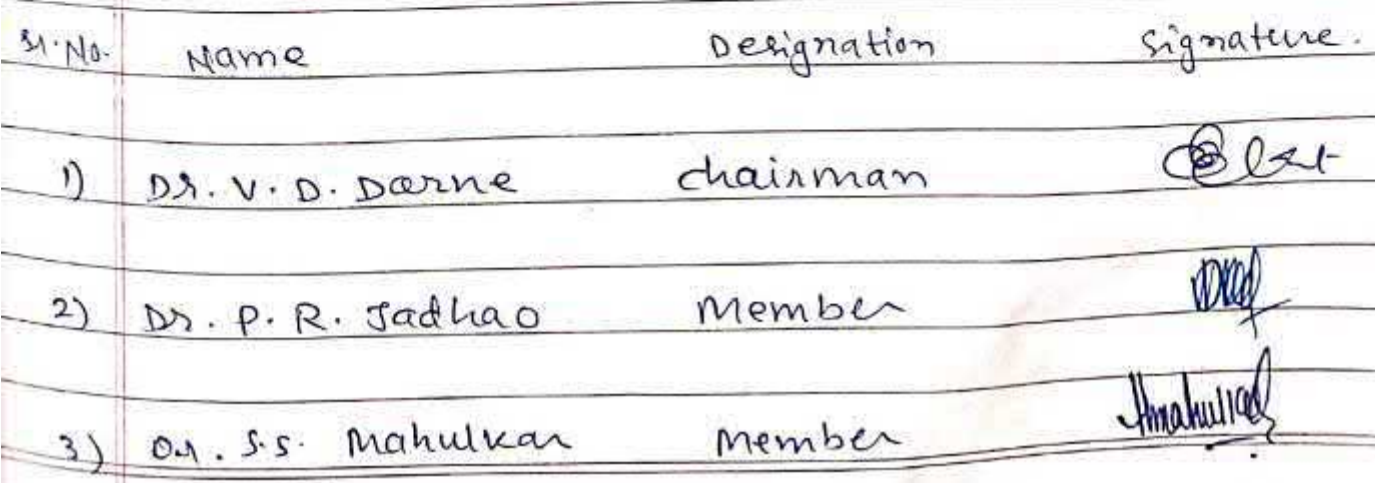 Sr. No. Name Designation Signature.
1) Dr. V. D. Darne Chairman
2) Dr. P. R. Jadhao Member
3) Dr. S.S. Mahulkar Member